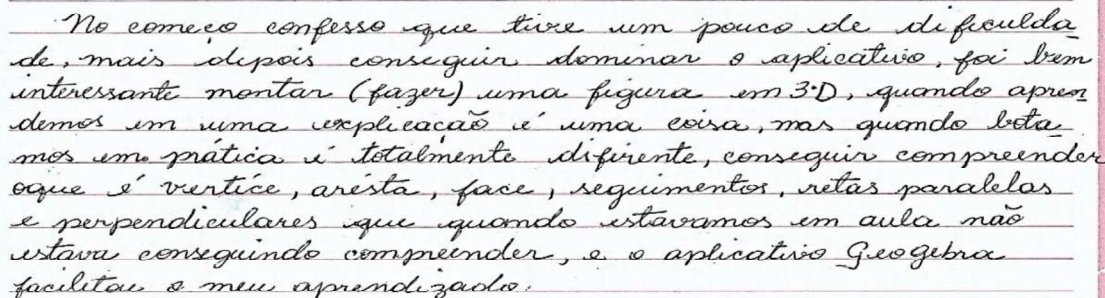 No começo confesso que tive um pouco de dificulda
de, mais depois conseguir dominar o aplicativo, foi bem
interessante montar (fazer) uma figura em 3.D, quando apren
demos em uma explicação é uma coisa, mas quando bota
mos em prática é totalmente difirente, conseguir compreender
oque é vertíce, arésta, face, seguimentos, retas paralelas
e perpendiculares que quando estavamos em aula não
estava conseguindo compreender, e o aplicativo Geogebra
facilitou o meu aprendizado.